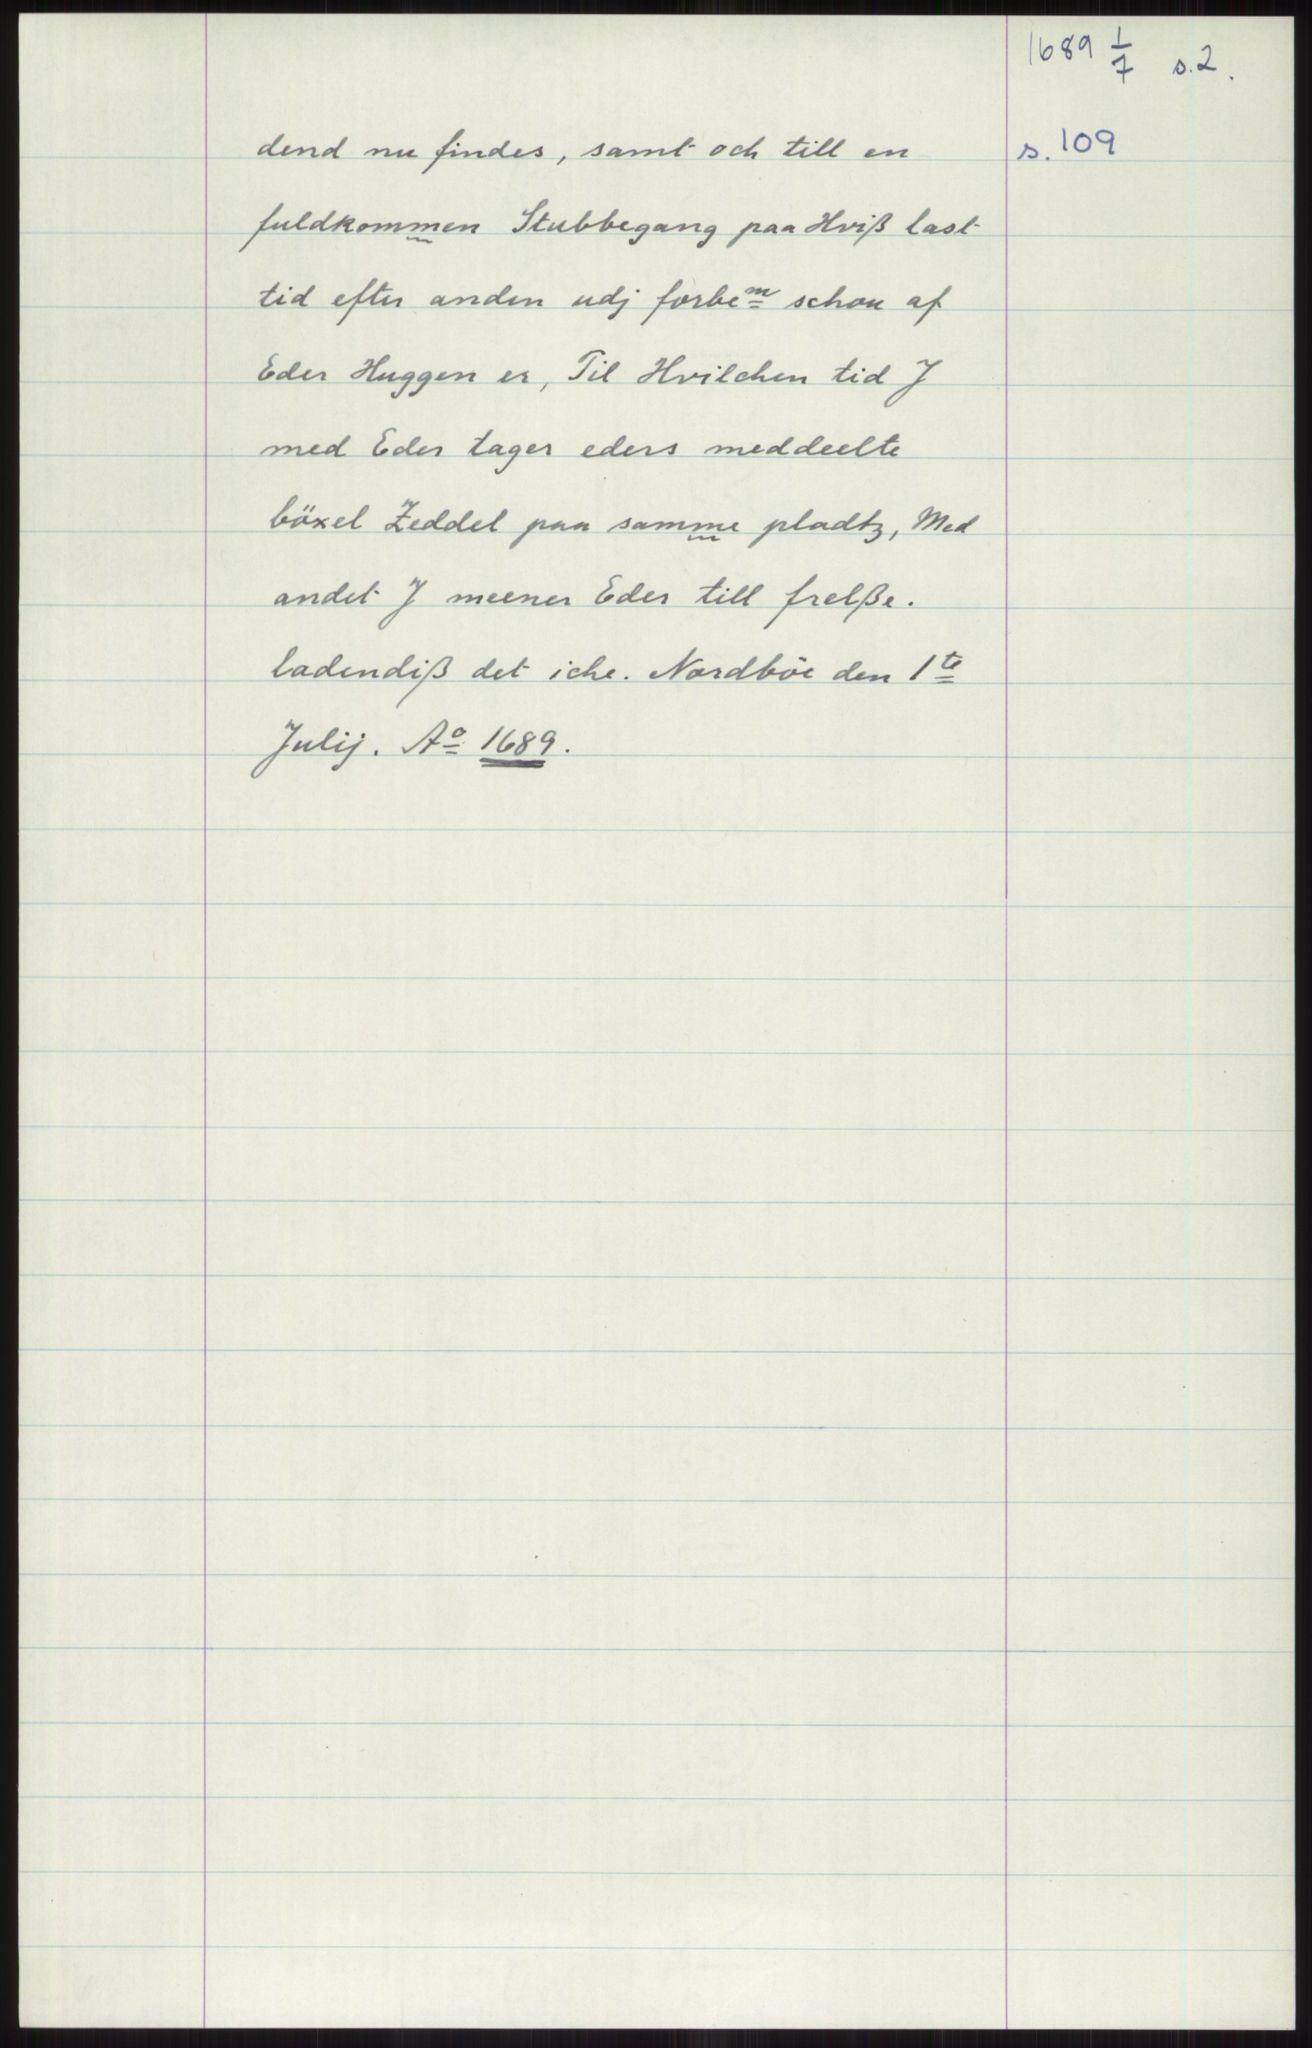 1689 1/7 s.2.
s. 109
dend nu findes, samt och till en
fuldkommen Stubbegang paa Hviß last
tid efter anden udj forbem schou af
Eder Huggen er, Til Hvilchen tid J
med Eder tager eders meddeelte
böxel Zeddel paa samme pladtz, Med
andet J meener Eder till frelße.
ladendiß det iche. Nordböe den 1te
Julij. Ao 1689.